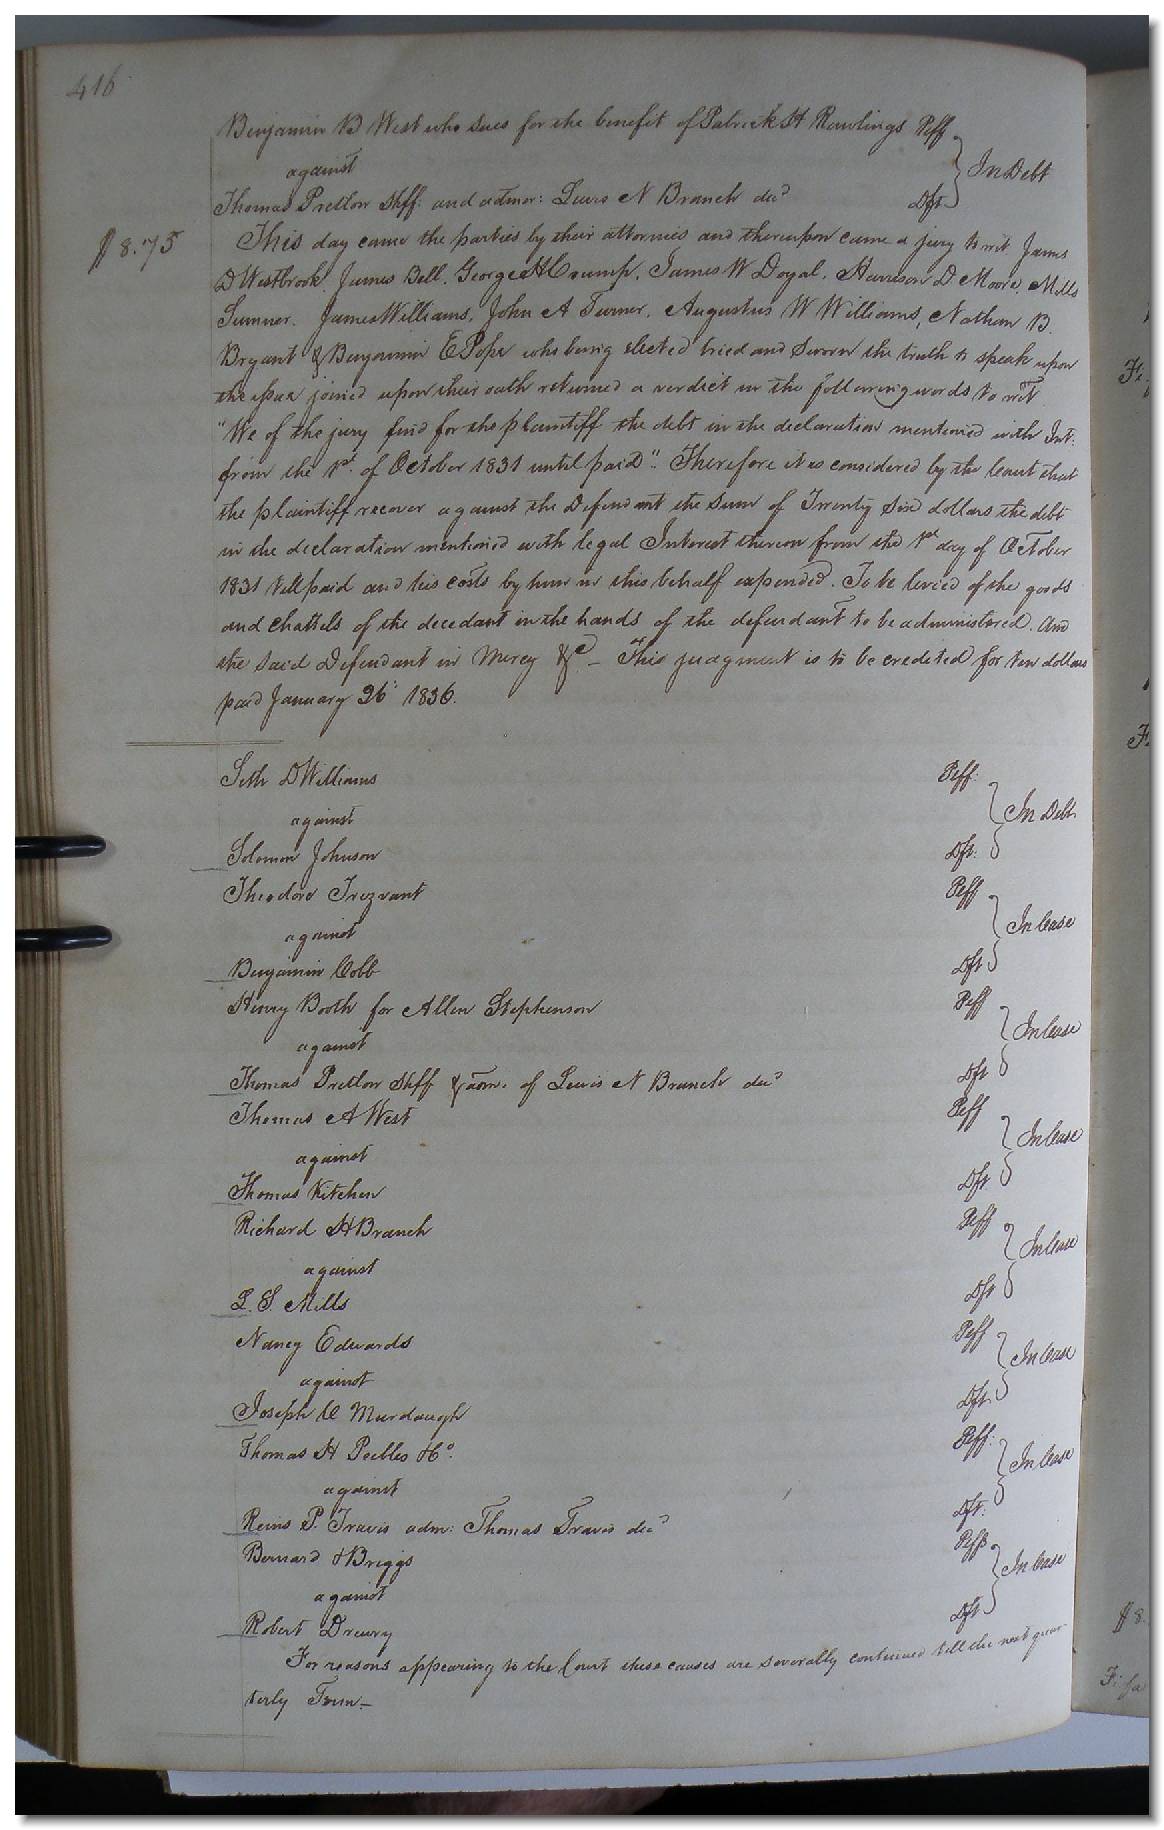 416
Benjamin B West who sues for the benefit of Patrick H Rawlings Plff
against
In Debt
Thomas Pretlow Shff: and admor: Lewis N Branch decd
Dft
$8.75
This day came the parties by their attornies and thereupon came a jury to wit James
D Westbrook, James Bell, George H Crump, James W Doyal, Harrison D Moore, Mills
Sumner, James Williams, John A Turner, Augustus W Williams, Nathan B.
Bryant & Benjamin E Pope who being elected tried and sworn the truth to speak upon
the issue joined upon their oath returned a verdict in the following words to wit
"We of the jury find for the plaintiff the debt in the declaration mentioned with Int:
from the 1st. of October 1831 until paid". Therefore it is considered by the Court that
the plaintiff recover against the Defendant the sum of Twenty Six dollars the debt
in the declaration mentioned with legal Interest thereon from the 1st day of October
1831 till paid and his costs by him in this behalf expended. To be levied of the goods
and chattels of the decedant in the hands of the defendant to be administered. And
the said Defendant in Mercy &c – This judgment is to be credited for ten dollars
paid January 26 1836.
Seth D Williams Plff:
against
In Debt
Solomon Johnson Dft:
Theodore Trezvant Plff
against
In Case
Benjamin Cobb Dft
Henry Booth for Allen Stephenson Plff
against
In Case
Thomas Pretlow Shff & adm. of Lewis N Branch decd Dft
Thomas A West Plff
against
In Case
Thomas Kitchen Dft
Richard H Branch Plff
against
In Case
L. S. Mills Dft
Nancy Edwards Plff
against
In Case
Joseph C Murdaugh Dft
Thomas H Peebles & Co. Plff:
against
In Case
Reins P. Travis adm: Thomas Travis decd Dft:
Bernard & Briggs Plffs
against
In Case
Robert Drewry Dft
For reasons appearing to the Court these causes are severally continued till the next quar
terly Term –
$8.
Fi fa